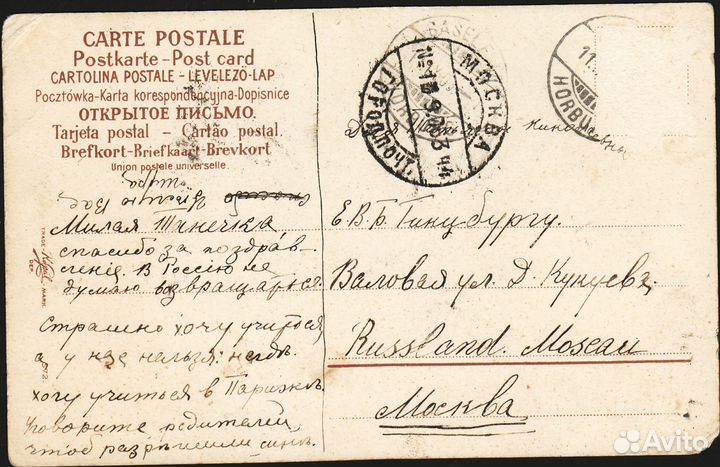 CARTE POSTALE
Postkarte - Post card
CARTOLINA POSTALE - LEVELEZŐ-LAP
Pocztówka-Karta korespondencyjna-Dopisnice
ОТКРЫТОЕ ПИСЬМО.
Tarjeta postal - Cartão postal.
Brefkort-Briefkaart-Brevkort
Union postale universelle.
Милая Танечка
спасибо за поздрав-
ление. В Россію не
думаю возвращаться.
Страшно хочу учиться,
а у нас нельзя: негдѣ.
хочу учиться в Парижѣ.
Уговорите родителей,
чтоб разрѣшили
TRADE MARK
DEP.
BASEL
МОСКВА
11.
HORBU
Е.В.Б. Гинцбургу.
Валовая ул. Д. Кукуева,
Russland. Moscau
Москва
Avito